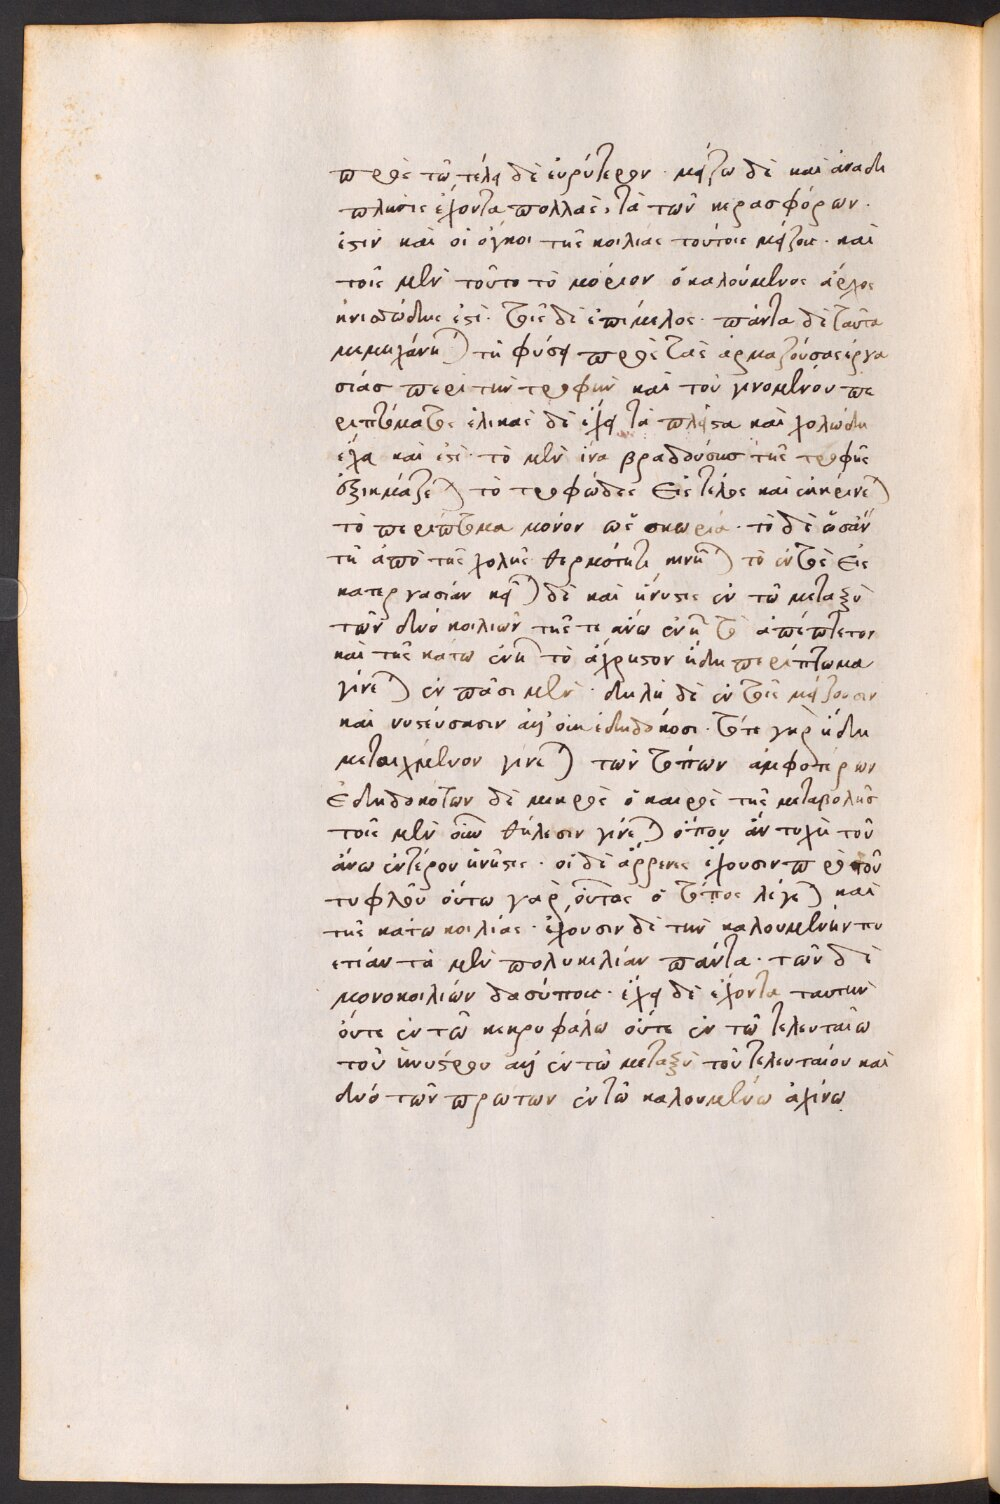 πρὸς τῶ τέλει δὲ εὐρύτερον. μείζω δὲ καὶ ἀναδι
πλώσεις ἔχοντα πολλὰς, τὰ τῶν κερασφόρων.
ἐστὶν καὶ οἱ ὄγκοι τῆς κοιλίας τούτοις μείζους. καὶ
τοῖς μὲν τοῦτο τὸ μόριον ὁ καλούμενος ἀρχὸς
κνισώδης ἐστὶ. τοῖς δὲ ἐπίμελος. πάντα δὲ ταῦτα
μεμηχάνηται τῆ φύσει πρὸς τὰς ἁρμοζούσας ἐργα
σίας περὶ τὴν τροφὴν καὶ τοῦ γινομένου πε
ριττώματος ἕλικας δὲ ἔχει τὰ πλεῖστα καὶ χολώδη
ἔχει καὶ ἐστὶ. τὸ μὲν ἵνα βραδύνουσα τῆς τροφῆς
ἐξικμάζεται τὸ τροφῶδες εἰς τέλος καὶ ἐκκρίνεται
τὸ περίττωμα μόνον ὡς σκωρία. τὸ δὲ ὡσὰν
τῆ ἀπὸ τῆς χολῆς θερμότητι κινῆται τὸ ἐντὸς εἰς
κατεργασίαν κεῖται δὲ καὶ ἡ νῆστις ἐν τῶ μεταξὺ
τῶν δυό κοιλιῶν τῆς τε ἄνω ἐν ἧ τὸ ἄπεπτον
καὶ τῆς κάτω ἐν ἧ τὸ ἄχρηστον ἤδη περίττωμα
γίνεται ἐν πᾶσι μὲν. δήλη δὲ ἐν τοῖς μείζουσιν
καὶ νηστεύσασιν ἀλλ' οὐκ ἐδηδοκόσι. τότε γὰρ ἤδη
μεταιχμίενον γίνεται τῶν τόπων ἀμφοτέρων
ἐδηδοκότων δὲ μικρὸς ὁ καιρὸς τῆς μεταβολῆς
τοῖς μὲν οὖν θήλεσιν γίνεται ὅπου ἂν τύχη τοῦ
ἄνω ἐντέρου ἡ νῆστις. οἱ δὲ ἄρρενες ἔχουσιν πρὸ τοῦ
τυφλοῦ οὕτω γὰρ οὗτος ὁ τόπος λέγεται καὶ
τῆς κάτω κοιλίας. ἔχουσιν δὲ τὴν καλουμένην πυ
ετίαν τὰ μὲν πολυκοίλιαν πάντα. τῶν δὲ
μονοκοιλίων δασύπους. ἔχει δὲ ἔχοντα ταύτην
οὔτε ἐν τῶ κεκρυφάλω οὔτε ἐν τῶ τελευταίω
τοῦ ἡνύστρου ἀλλ' ἐν τῶ μεταξὺ τοῦ τελευταίου καὶ
δυό τῶν πρώτων ἐν τῶ καλουμένω ἐχίνω